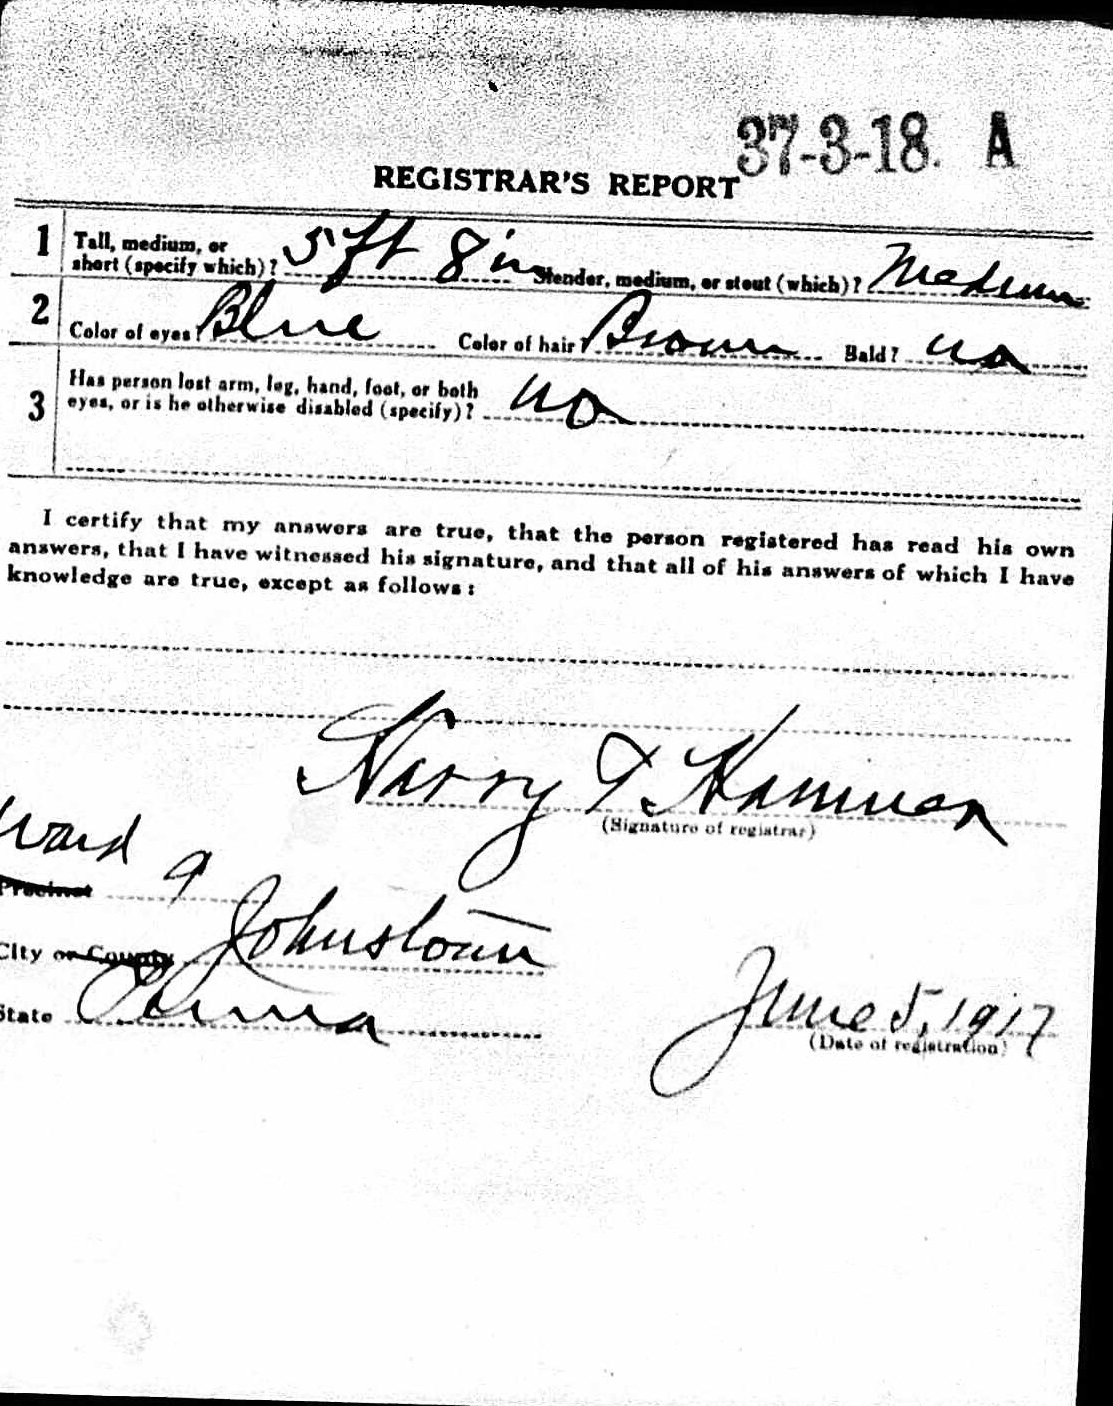 37-3-18. A
REGISTRAR'S REPORT
1 Tall, medium, or
short (specify which)? 5 ft 8 in Slender, medium, or stout (which)? Medium
2 Color of eyes? Blue Color of hair? Brown Bald? no
Has person lost arm, leg, hand, foot, or both
3 eyes, or is he otherwise disabled (specify)? no
I certify that my answers are true, that the person registered has read his own
answers, that I have witnessed his signature, and that all of his answers of which I have
knowledge are true, except as follows:
Harry T Hamman
(Signature of registrar)
Ward 9
Precinct
City or County Johnstown
State Penna
June 5, 1917
(Date of registration)